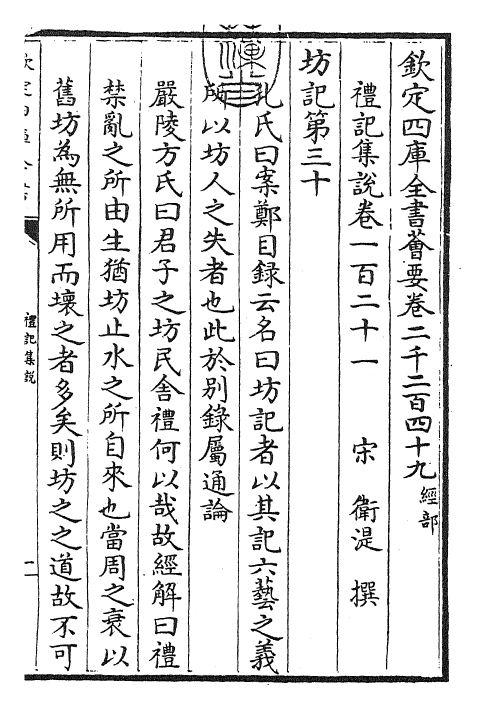 欽定四庫全書薈要卷二千二百四十九經部
禮記集說卷一百二十一　宋　衛湜　撰
坊記第三十
孔氏曰案鄭目録云名曰坊記者以其記六藝之義
所以坊人之失者也此於別錄屬通論
嚴陵方氏曰君子之坊民舎禮何以哉故經解曰禮
禁亂之所由生猶坊止水之所自來也當周之衰以
舊坊為無所用而壞之者多矣則坊之之道故不可
禮記集說